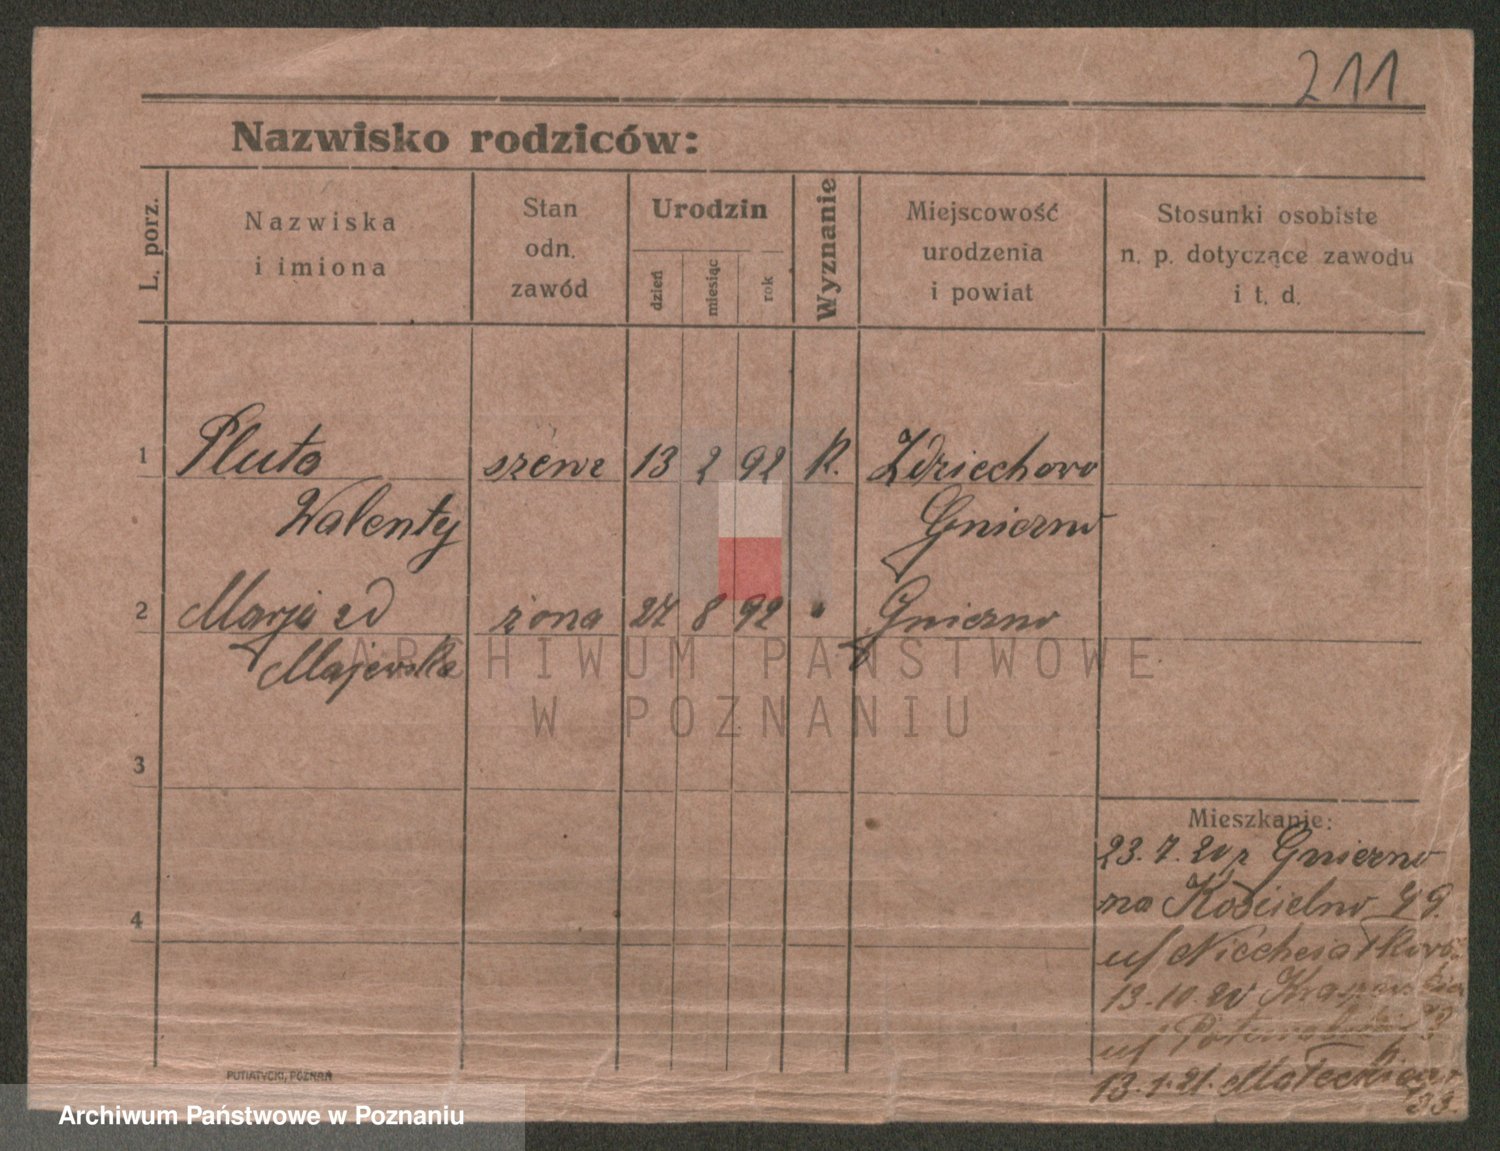 211
Nazwisko rodziców:
L. porz.
Nazwiska
i imiona
Stan
odn.
zawód
Urodzin
dzień
miesiąc
rok
Wyznanie
Miejscowość
urodzenia
i powiat
Stosunki osobiste
n. p. dotyczące zawodu
i t. d.
1 Pluta szewc 13 2 92 K. Zdziechowo
Walenty Gniezno
2 Marja zd żona 24 8 92 " Gniezno
Majewska
3
4
Mieszkanie:
23.7.20 z Gniezno
na Kościelno 49.
u/
13.10.20
u/
13.1.21. Małeckiego
33.
PUTIATYCKI, POZNAŃ
ARCHIWUM PAŃSTWOWE
W POZNANIU
Archiwum Państwowe w Poznaniu